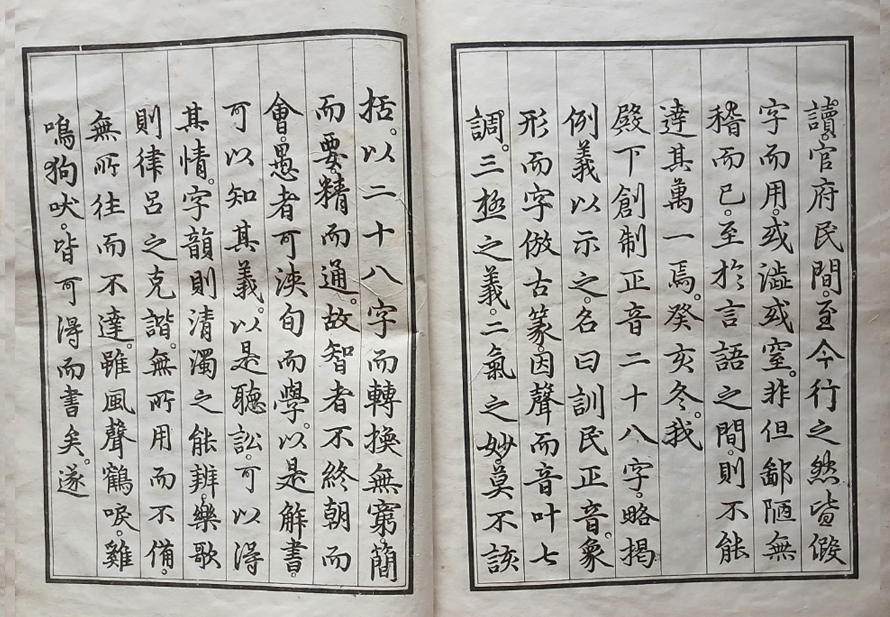 讀。官府民間。至今行之然皆假
字而用。或澁或窒。非但鄙陋無
稽而已。至於言語之間。則不能
達其萬一焉。癸亥冬。我
殿下創制正音二十八字。略揭
例義以示之。名曰訓民正音。象
形而字倣古篆。因聲而音叶七
調。三極之義。二氣之妙。莫不該
括。以二十八字而轉換無窮。簡
而要。精而通。故智者不終朝而
會。愚者可浹旬而學。以是解書。
可以知其義。以是聽訟。可以得
其情。字韻則清濁之能辨。樂歌
則律呂之克諧。無所用而不備。
無所往而不達。雖風聲鶴唳。雞
鳴狗吠。皆可得而書矣。遂